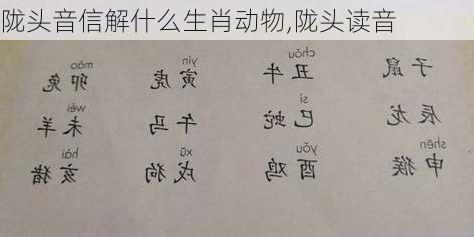 陇头音信解什么生肖动物,陇头读音
chǒu yín mǎo
子鼠 丑牛 寅虎 卯兔
sì wèi
辰龙 巳蛇 午马 未羊
shēn yǒu xū hài
申猴 酉鸡 戌狗 亥猪